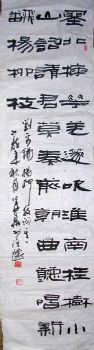 塞北梅花羌笛吹淮南桂樹小
山詞請君莫奏前朝曲聽唱新
翻楊柳枝
劉禹錫楊柳枝詞